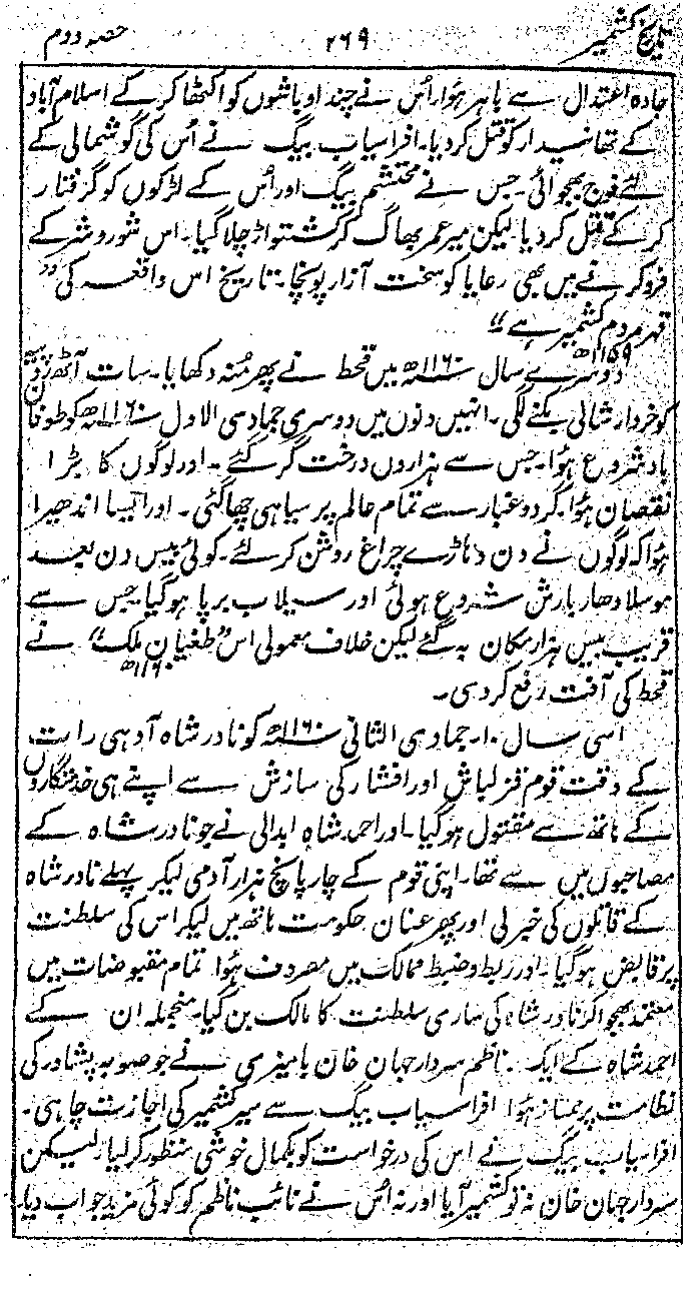 تاریخ کشمیر ۲۶۹ حصہ دوم
جادہ اعتدال سے باہر ہؤا۔ اُس نے چند اوباشوں کو اکٹھا کر کے اسلام آباد
کے تھانیدار کو قتل کر دیا۔ افراسیاب بیگ نے اُس کی گوشمالی کے
لئے فوج بھجوائی۔ جس نے محتشم بیگ اور اُس کے لڑکوں کو گرفتار
کر کے قتل کر دیا لیکن میر عمر بھاگ کر کشتواڑ چلا گیا۔ اس شور و شر کے
فرو کرنے میں بھی رعایا کو سخت آزار پہونچا۔ تاریخ اس واقعہ کی "
قہر مردم کشمیر ہے"
۱۱۵۹ھ
دوسرے سال ۱۱۶۰ھ میں قحط نے پھر مُنہ دکھایا۔ سات آٹھ روپیہ
کو خردار شالی بکنے لگی۔ انہیں دنوں میں دوسری جمادی الاول ۱۱۶۰ھ کو طوفان
باد شروع ہؤا۔ جس سے ہزاروں درخت گر گئے۔ اور لوگوں کا بڑا
نقصان ہؤا۔ گرد و غبار سے تمام عالم پر سیاہی چھا گئی۔ اور ایسا اندھیرا
ہؤا کہ لوگوں نے دن دہاڑے چراغ روشن کر لئے۔ کوئی بیس دن بعد
موسلا دھار بارش شروع ہوئی اور سیلاب برپا ہو گیا جس سے
قریب بیس ہزار مکان بہ گئے لیکن خلاف معمولی اس "طغیان ملک" نے
۱۱۶۰ھ
قحط کی آفت رفع کر دی۔
اسی سال ۱۰۔ جمادی الثانی ۱۱۶۰ھ کو نادر شاہ آدہی رات
کے وقت قوم قزلباش اور افشار کی سازش سے اپنے ہی خدمتگاروں
کے ہاتھ سے مقتول ہو گیا۔ اور احمد شاہ ابدالی نے جو نادر شاہ کے
مصاحبوں میں سے تھا۔ اپنی قوم کے چار پانچ ہزار آدمی لیکر پہلے نادر شاہ
کے قاتلوں کی خبر لی اور پھر عنان حکومت ہاتھ میں لیکر اس کی سلطنت
پر قابض ہو گیا۔ اور ربط و ضبط ممالک میں مصروف ہؤا۔ تمام مقبوضات میں
معتمد بھجوا کر نادر شاہ کی ساری سلطنت کا مالک بن گیا۔ منجملہ ان کے
احمد شاہ کے ایک ناظم سردار جہان خان بامیزی نے جو صوبہ پشاور کی
نظامت پر ممتاز ہؤا افراسیاب بیگ سے سیر کشمیر کی اجازت چاہی۔
افراسیاب بیگ نے اس کی درخواست کو بکمال خوشی منظور کر لیا۔ لیکن
سردار جہان خان نہ تو کشمیر آیا اور نہ اُس نے نائب ناظم کو کوئی مزید جواب دیا۔